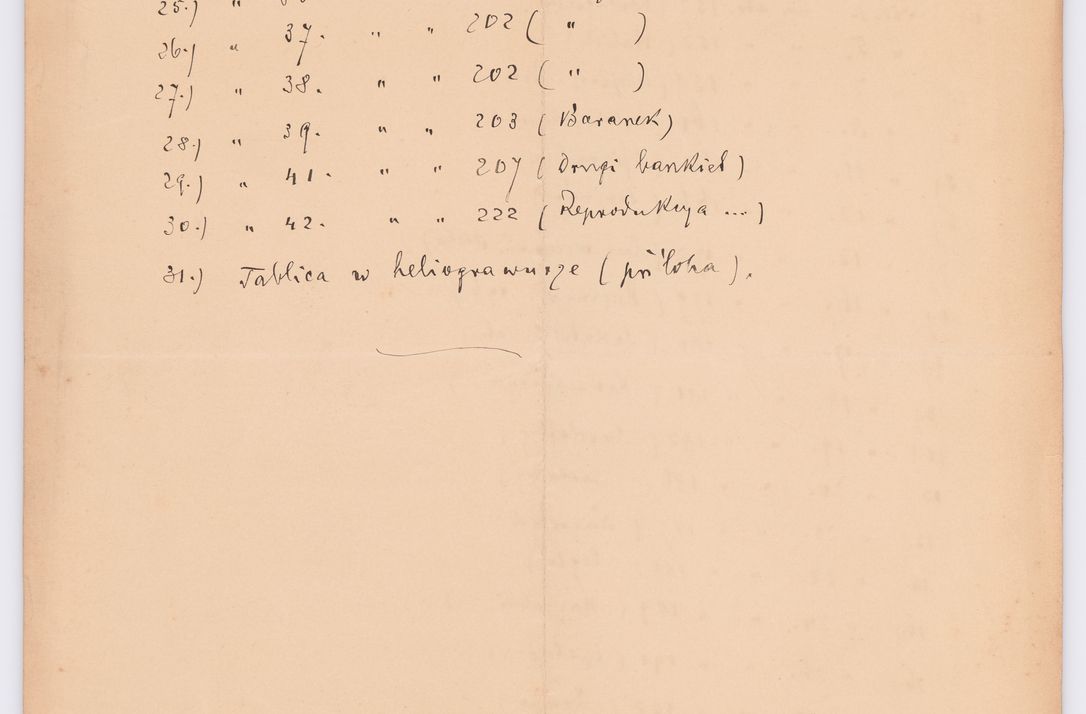 25.) "
26.) " 37. " " 202 ( " )
27.) " 38. " " 202 ( " )
28.) " 39. " " 203 ( Baranek )
29.) " 41. " " 207 ( Drugi bankiet )
30.) " 42. " " 222 ( Reprodukcya ... )
31.) Tablica w heliograwurze ( příloha ).